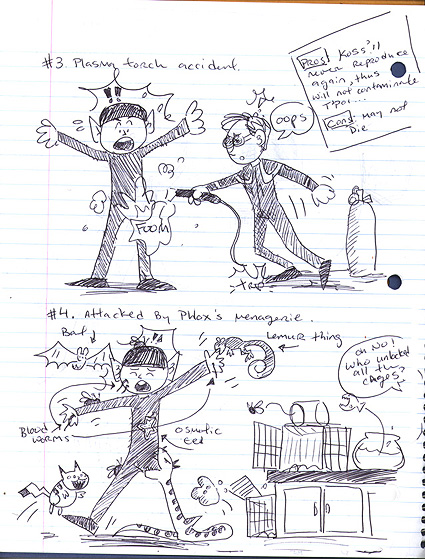 #3. Plasma torch accident.
Pros: Koss'll
never Reproduce
again, thus
will not contaminate
T'Pol...
Cons: may not
Die
!!
OOPS
FOOM
trip
#4. Attacked By Phlox's Menagerie.
Bat
Lemur thing
Blood
worms
osmotic
Eel
oh No!
who unlocked
all the
cages?